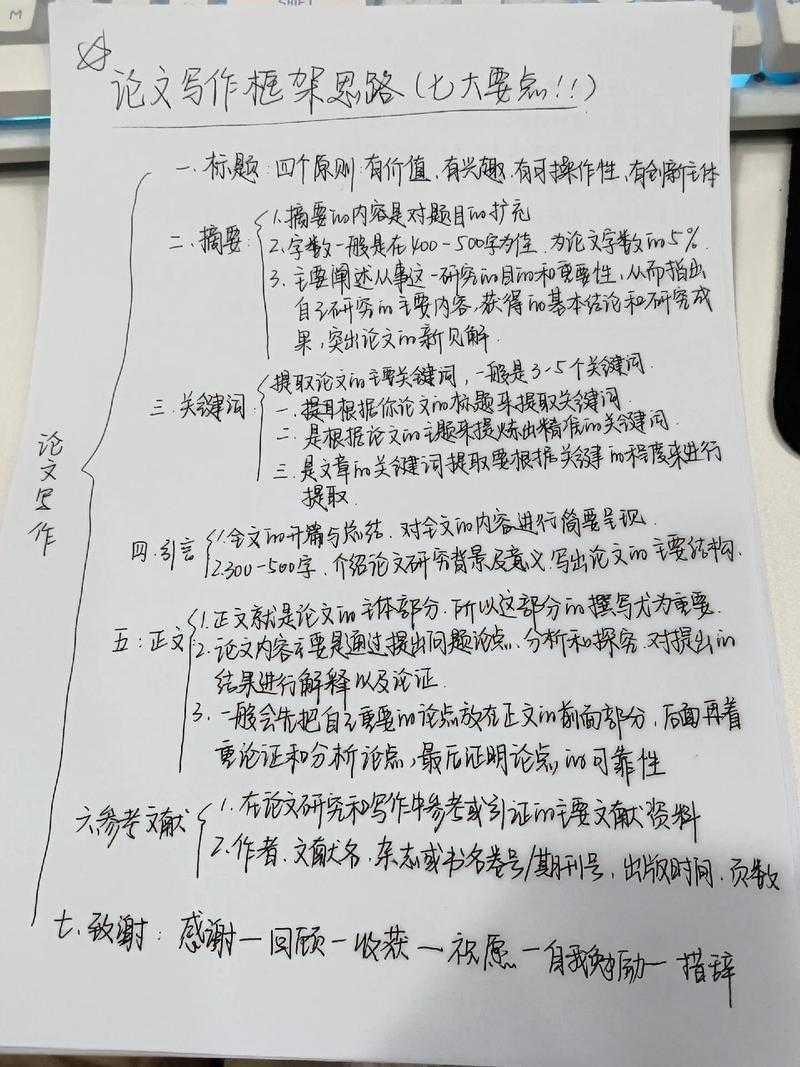 论文写作框架思路(七大要点!!)
论文写作
一、标题:四个原则:有价值、有兴趣、有可操作性、有创新主体
二、摘要:
1.摘要的内容是对题目的扩充
2.字数一般是在400-500字为佳.为论文字数的5%.
3.主要阐述从事这一研究的目的和重要性,从而指出
自己研究的主要内容,获得的基本结论和研究成
果,突出论文的新见解.
三.关键词
提取论文的主要关键词,一般是3-5个关键词.
一.根据你论文的标题来提取关键词.
二.是根据论文的主题来提炼出精准的关键词.
三.是文章的关键词提取要根据关键的程度来进行
提取.
四.引言
1.全文的开篇与总结.对全文的内容进行简要呈现.
2.300-500字.介绍论文研究背景及意义.写出论文的主要结构.
五:正文
1.正文就是论文的主体部分.所以这部分的撰写尤为重要.
2.论文内容主要是通过提出问题论点、分析和探究.对提出的
结果进行解释以及论证.
3.一般会先把自己重要的论点放在正文的前面部分,后面再着
重论证和分析论点,最后证明论点的可靠性
六参考文献
1.在论文研究和写作中参考或引证的主要文献资料
2.作者.文献名.杂志或书名卷号/期刊号,出版时间.页数
七.致谢:感谢—回顾—收获—祝愿—自我勉励—措辞
M
SHIFT